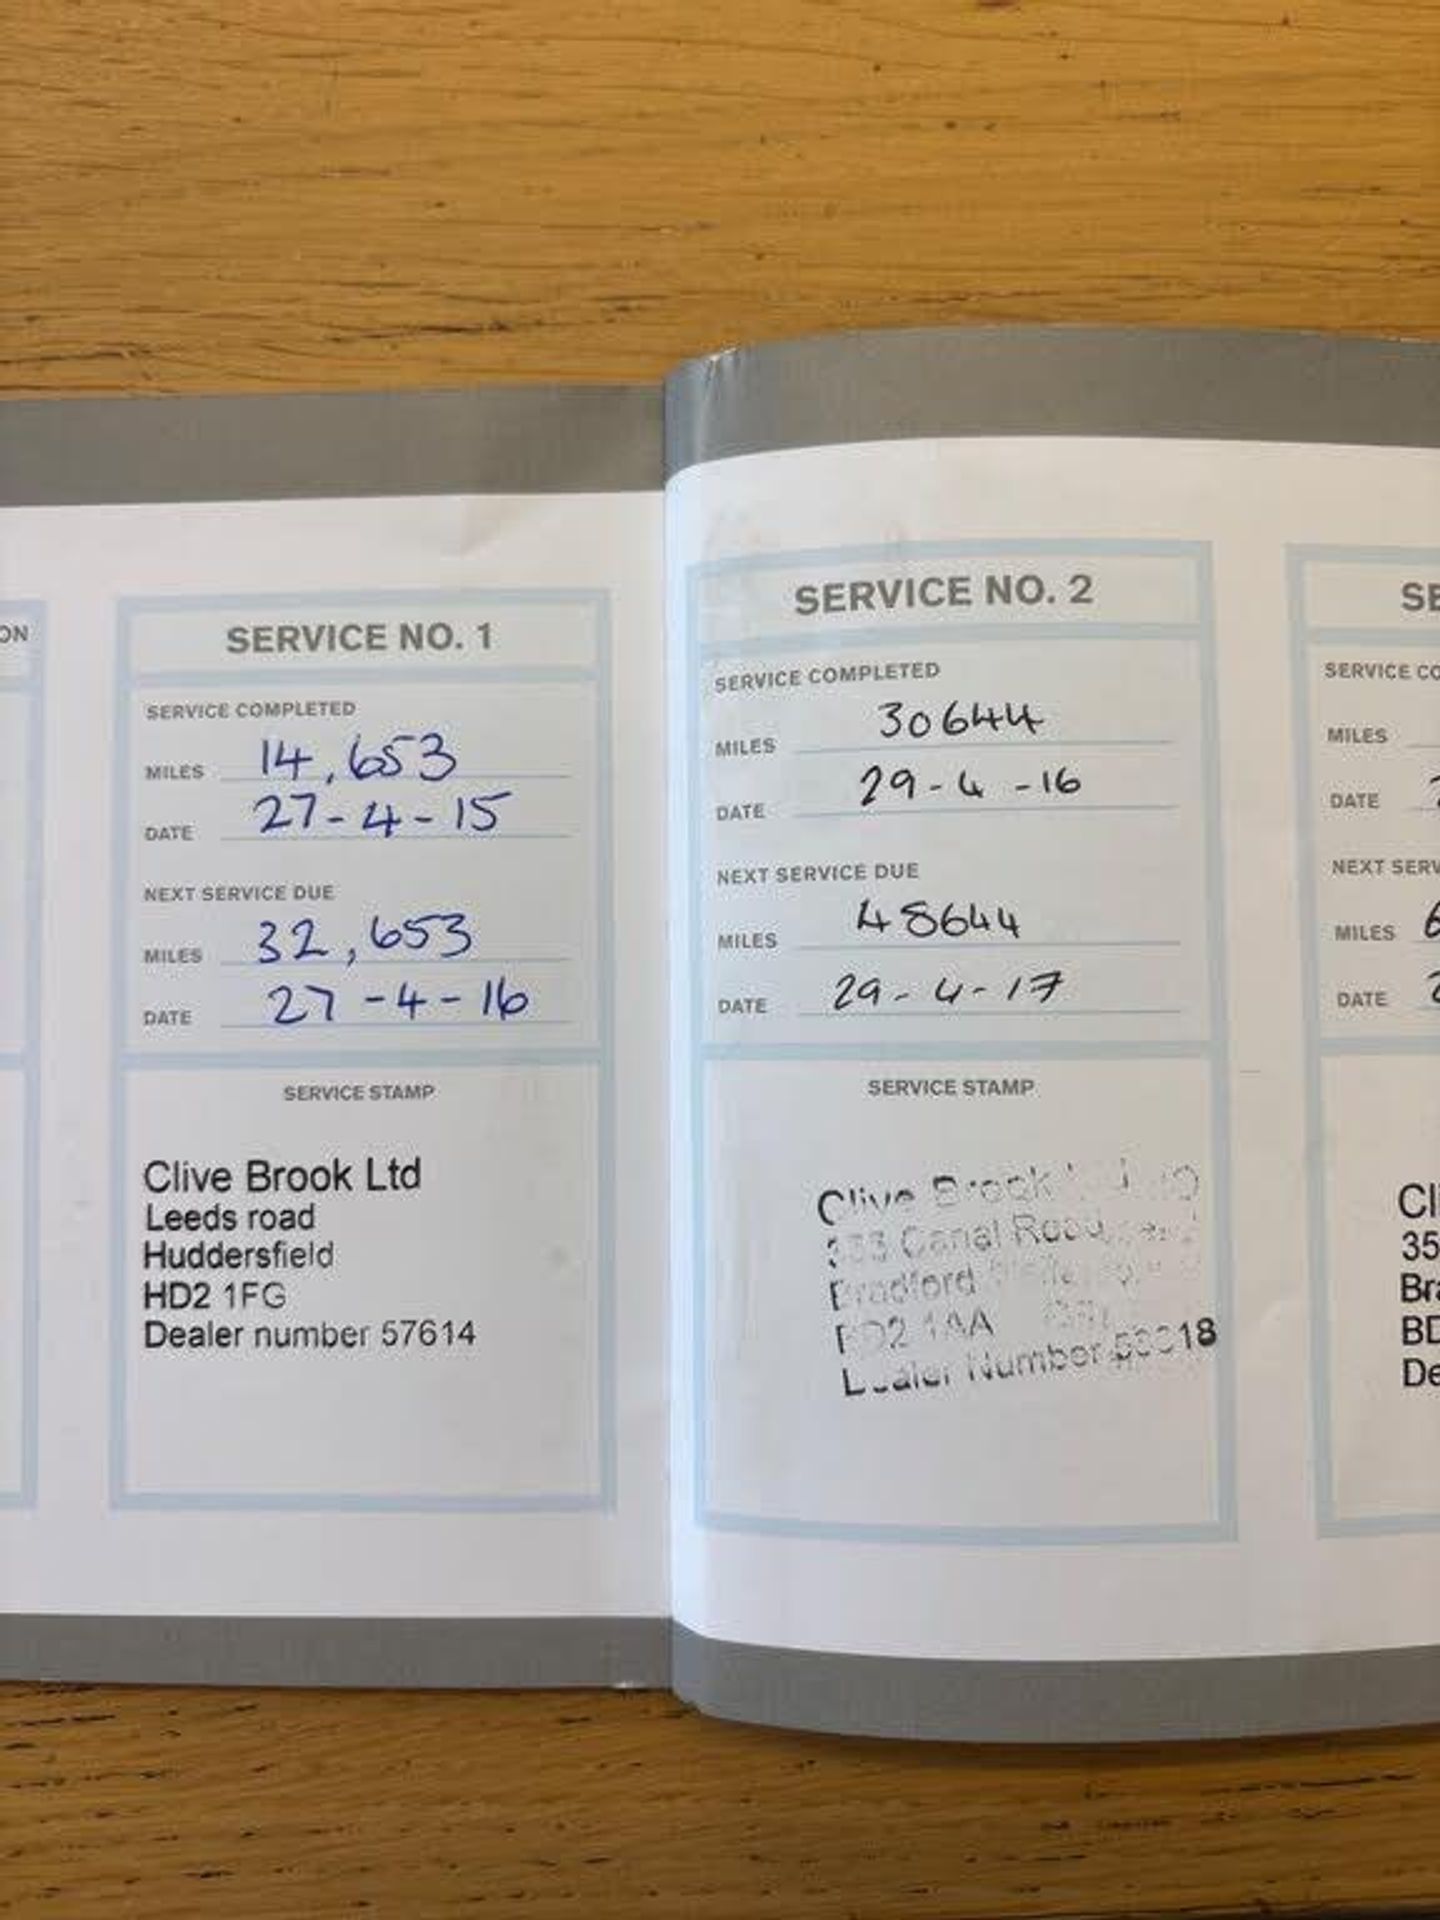 ON
SERVICE NO. 1
SERVICE COMPLETED
MILES 14,653
DATE 27-4-15
NEXT SERVICE DUE
MILES 32,653
DATE 27-4-16
SERVICE STAMP
Clive Brook Ltd
Leeds road
Huddersfield
HD2 1FG
Dealer number 57614
SERVICE NO. 2
SERVICE COMPLETED
MILES 30644
DATE 29-4-16
NEXT SERVICE DUE
MILES 48644
DATE 29-4-17
SERVICE STAMP
Clive Brook
Canal Road
Bradford
BD2 1AA
Dealer Number
SE
SERVICE CO
MILES
DATE 2
NEXT SERV
MILES 6
DATE 2
Cli
35
Bra
BD
De